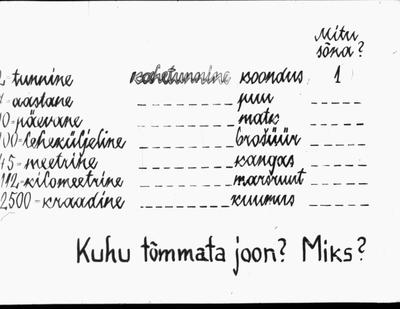 Mitu
sõna?
2-tunnine kahetunnine koondus 1
-aastane puu
10-päevane matk
100-leheküljeline brošüür
45-meetrine kangas
112-kilomeetrine marsruut
2500-kraadine kuumus
Kuhu tõmmata joon? Miks?